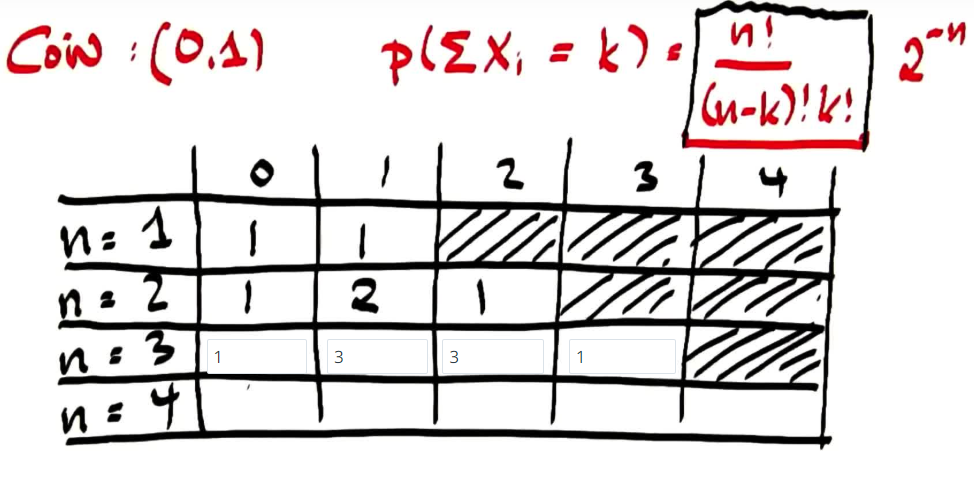 Coin : (0,1) p(Σ Xi = k) = n! / (n-k)! k! 2^-n
0 1 2 3 4
n = 1 1 1
n = 2 1 2 1
n = 3 1 3 3 1
n = 4